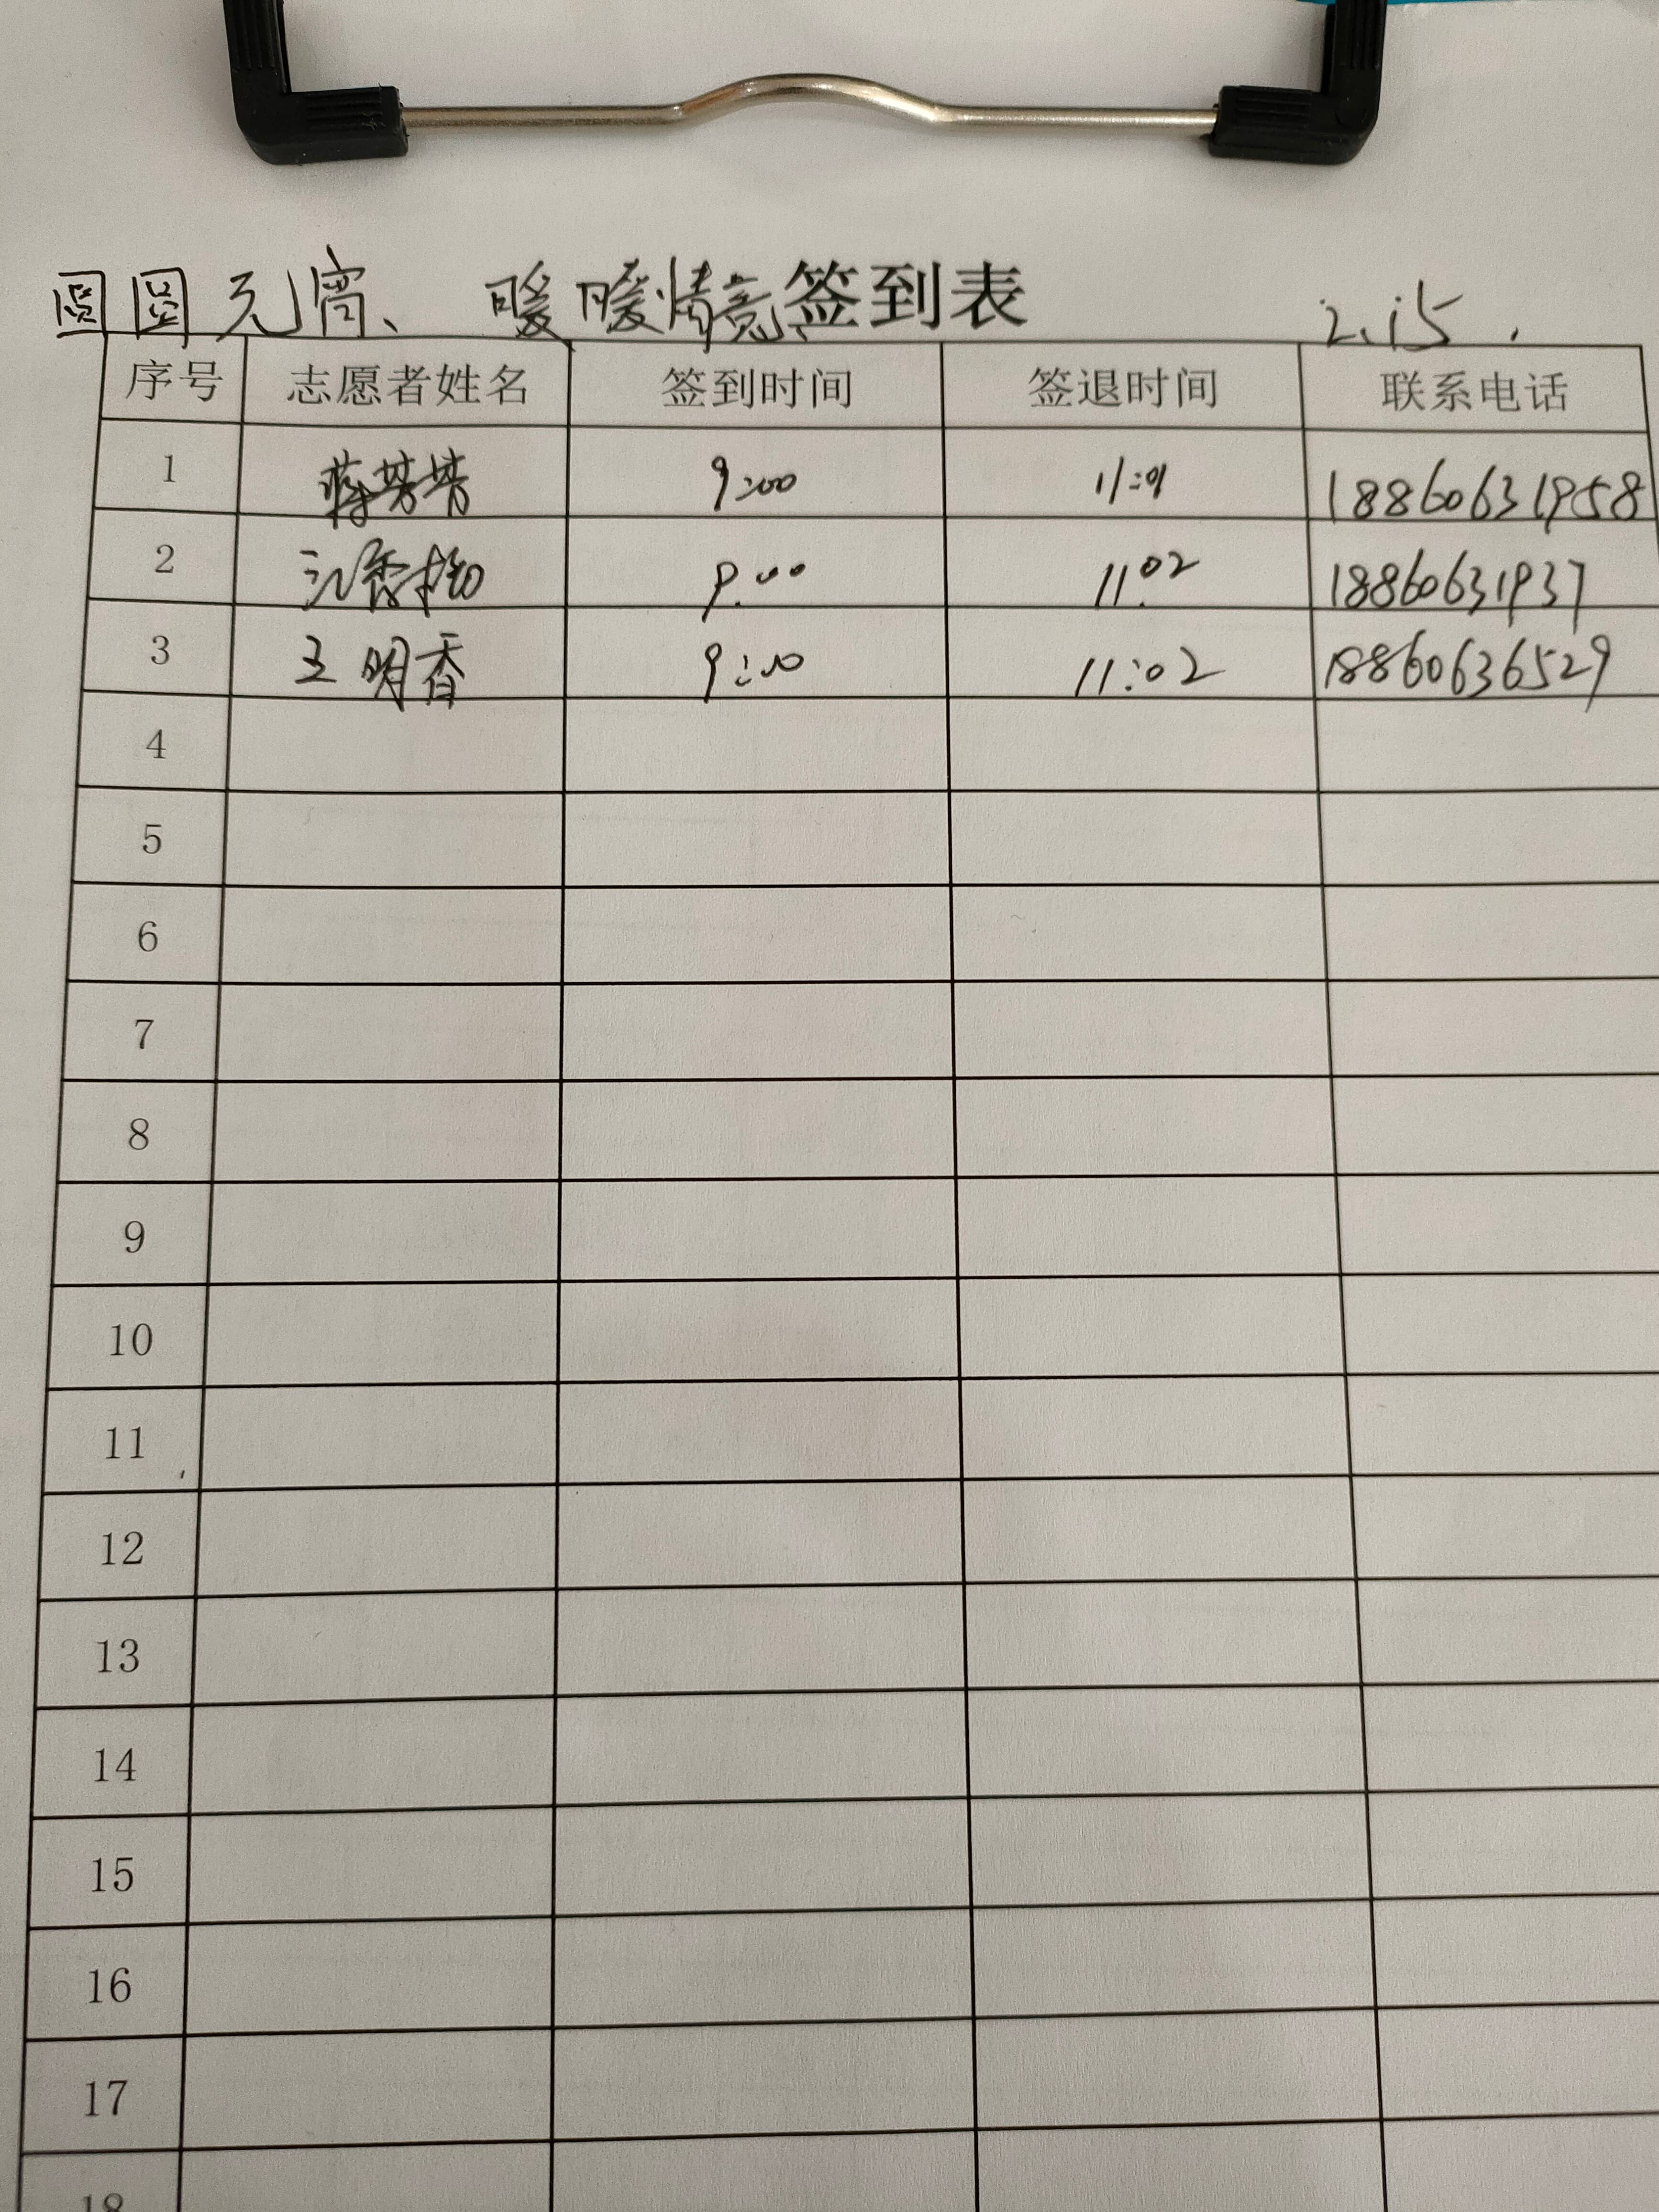 圆圆元宵、暖暖情意签到表 2.15.
序号 志愿者姓名 签到时间 签退时间 联系电话
1 蒋芳芳 9:00 11:01 18860631958
2 9:00 11:02 18860631937
3 王明香 9:00 11:02 18860636529
4
5
6
7
8
9
10
11
12
13
14
15
16
17
18